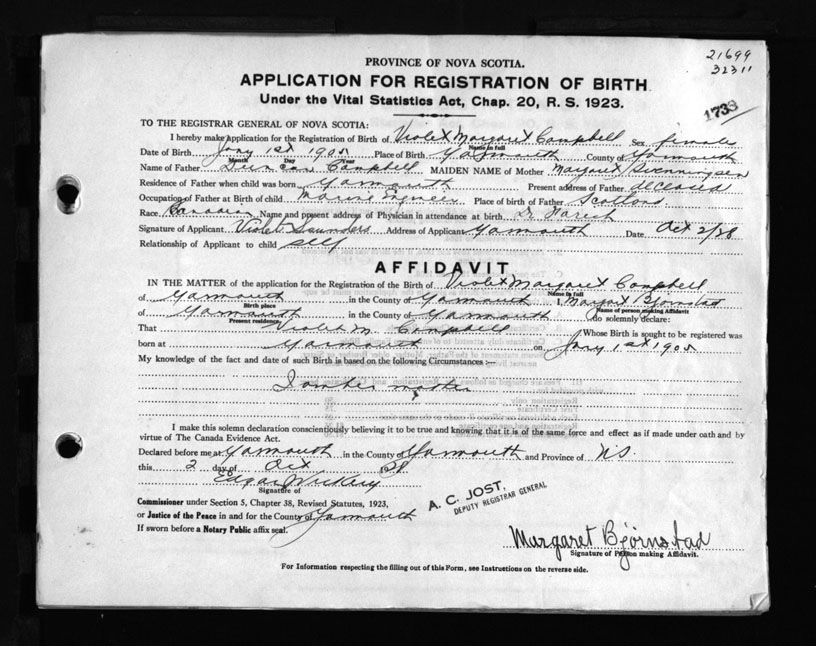 21699
32311
1733
PROVINCE OF NOVA SCOTIA.
APPLICATION FOR REGISTRATION OF BIRTH
Under the Vital Statistics Act, Chap. 20, R. S. 1923.
TO THE REGISTRAR GENERAL OF NOVA SCOTIA:
I hereby make application for the Registration of Birth of Violet Margaret Campbell Sex female
Name in full
Date of Birth Jany 1st 1905 Place of Birth Yarmouth County of Yarmouth
Month Day Year
Name of Father Campbell MAIDEN NAME of Mother Margaret Svenningsen
Residence of Father when child was born Yarmouth Present address of Father deceased
Occupation of Father at Birth of child Marine Engineer Place of birth of Father Scotland
Race Canadian Name and present address of Physician in attendance at birth Dr
Signature of Applicant Violet Saunders Address of Applicant Yarmouth Date Oct 2/28
Relationship of Applicant to child self
AFFIDAVIT
IN THE MATTER of the application for the Registration of the Birth of Violet Margaret Campbell
Name in full
of Yarmouth in the County of Yarmouth I, Margaret Bjornstad
Birth place Name of person making Affidavit
of Yarmouth in the County of Yarmouth do solemnly declare:
Present residence
That Violet M. Campbell Whose Birth is sought to be registered was
born at Yarmouth on Jany 1st 1905
My knowledge of the fact and date of such Birth is based on the following Circumstances :—
I am her mother
I make this solemn declaration conscientiously believing it to be true and knowing that it is of the same force and effect as if made under oath and by
virtue of The Canada Evidence Act.
Declared before me at Yarmouth in the County of Yarmouth and Province of N.S.
this 2 day of Oct 1928
Edgar
Signature of
Commissioner under Section 5, Chapter 38, Revised Statutes, 1923,
or Justice of the Peace in and for the County of Yarmouth
If sworn before a Notary Public affix seal.
A. C. JOST,
DEPUTY REGISTRAR GENERAL
Margaret Bjornstad
Signature of Person making Affidavit.
For Information respecting the filling out of this Form, see Instructions on the reverse side.